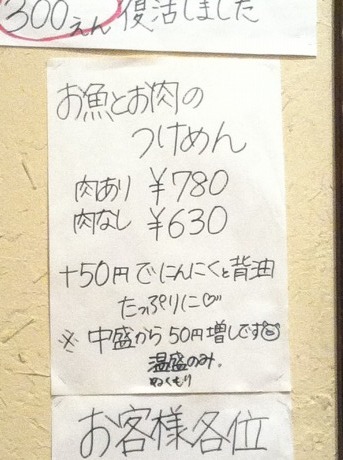 300えん 復活しました
お魚とお肉の
つけめん
肉あり ¥780
肉なし ¥630
+50円でにんにくと背油
たっぷりに♡
※中盛から50円増しです
温盛のみ。
ぬくもり
お客様各位